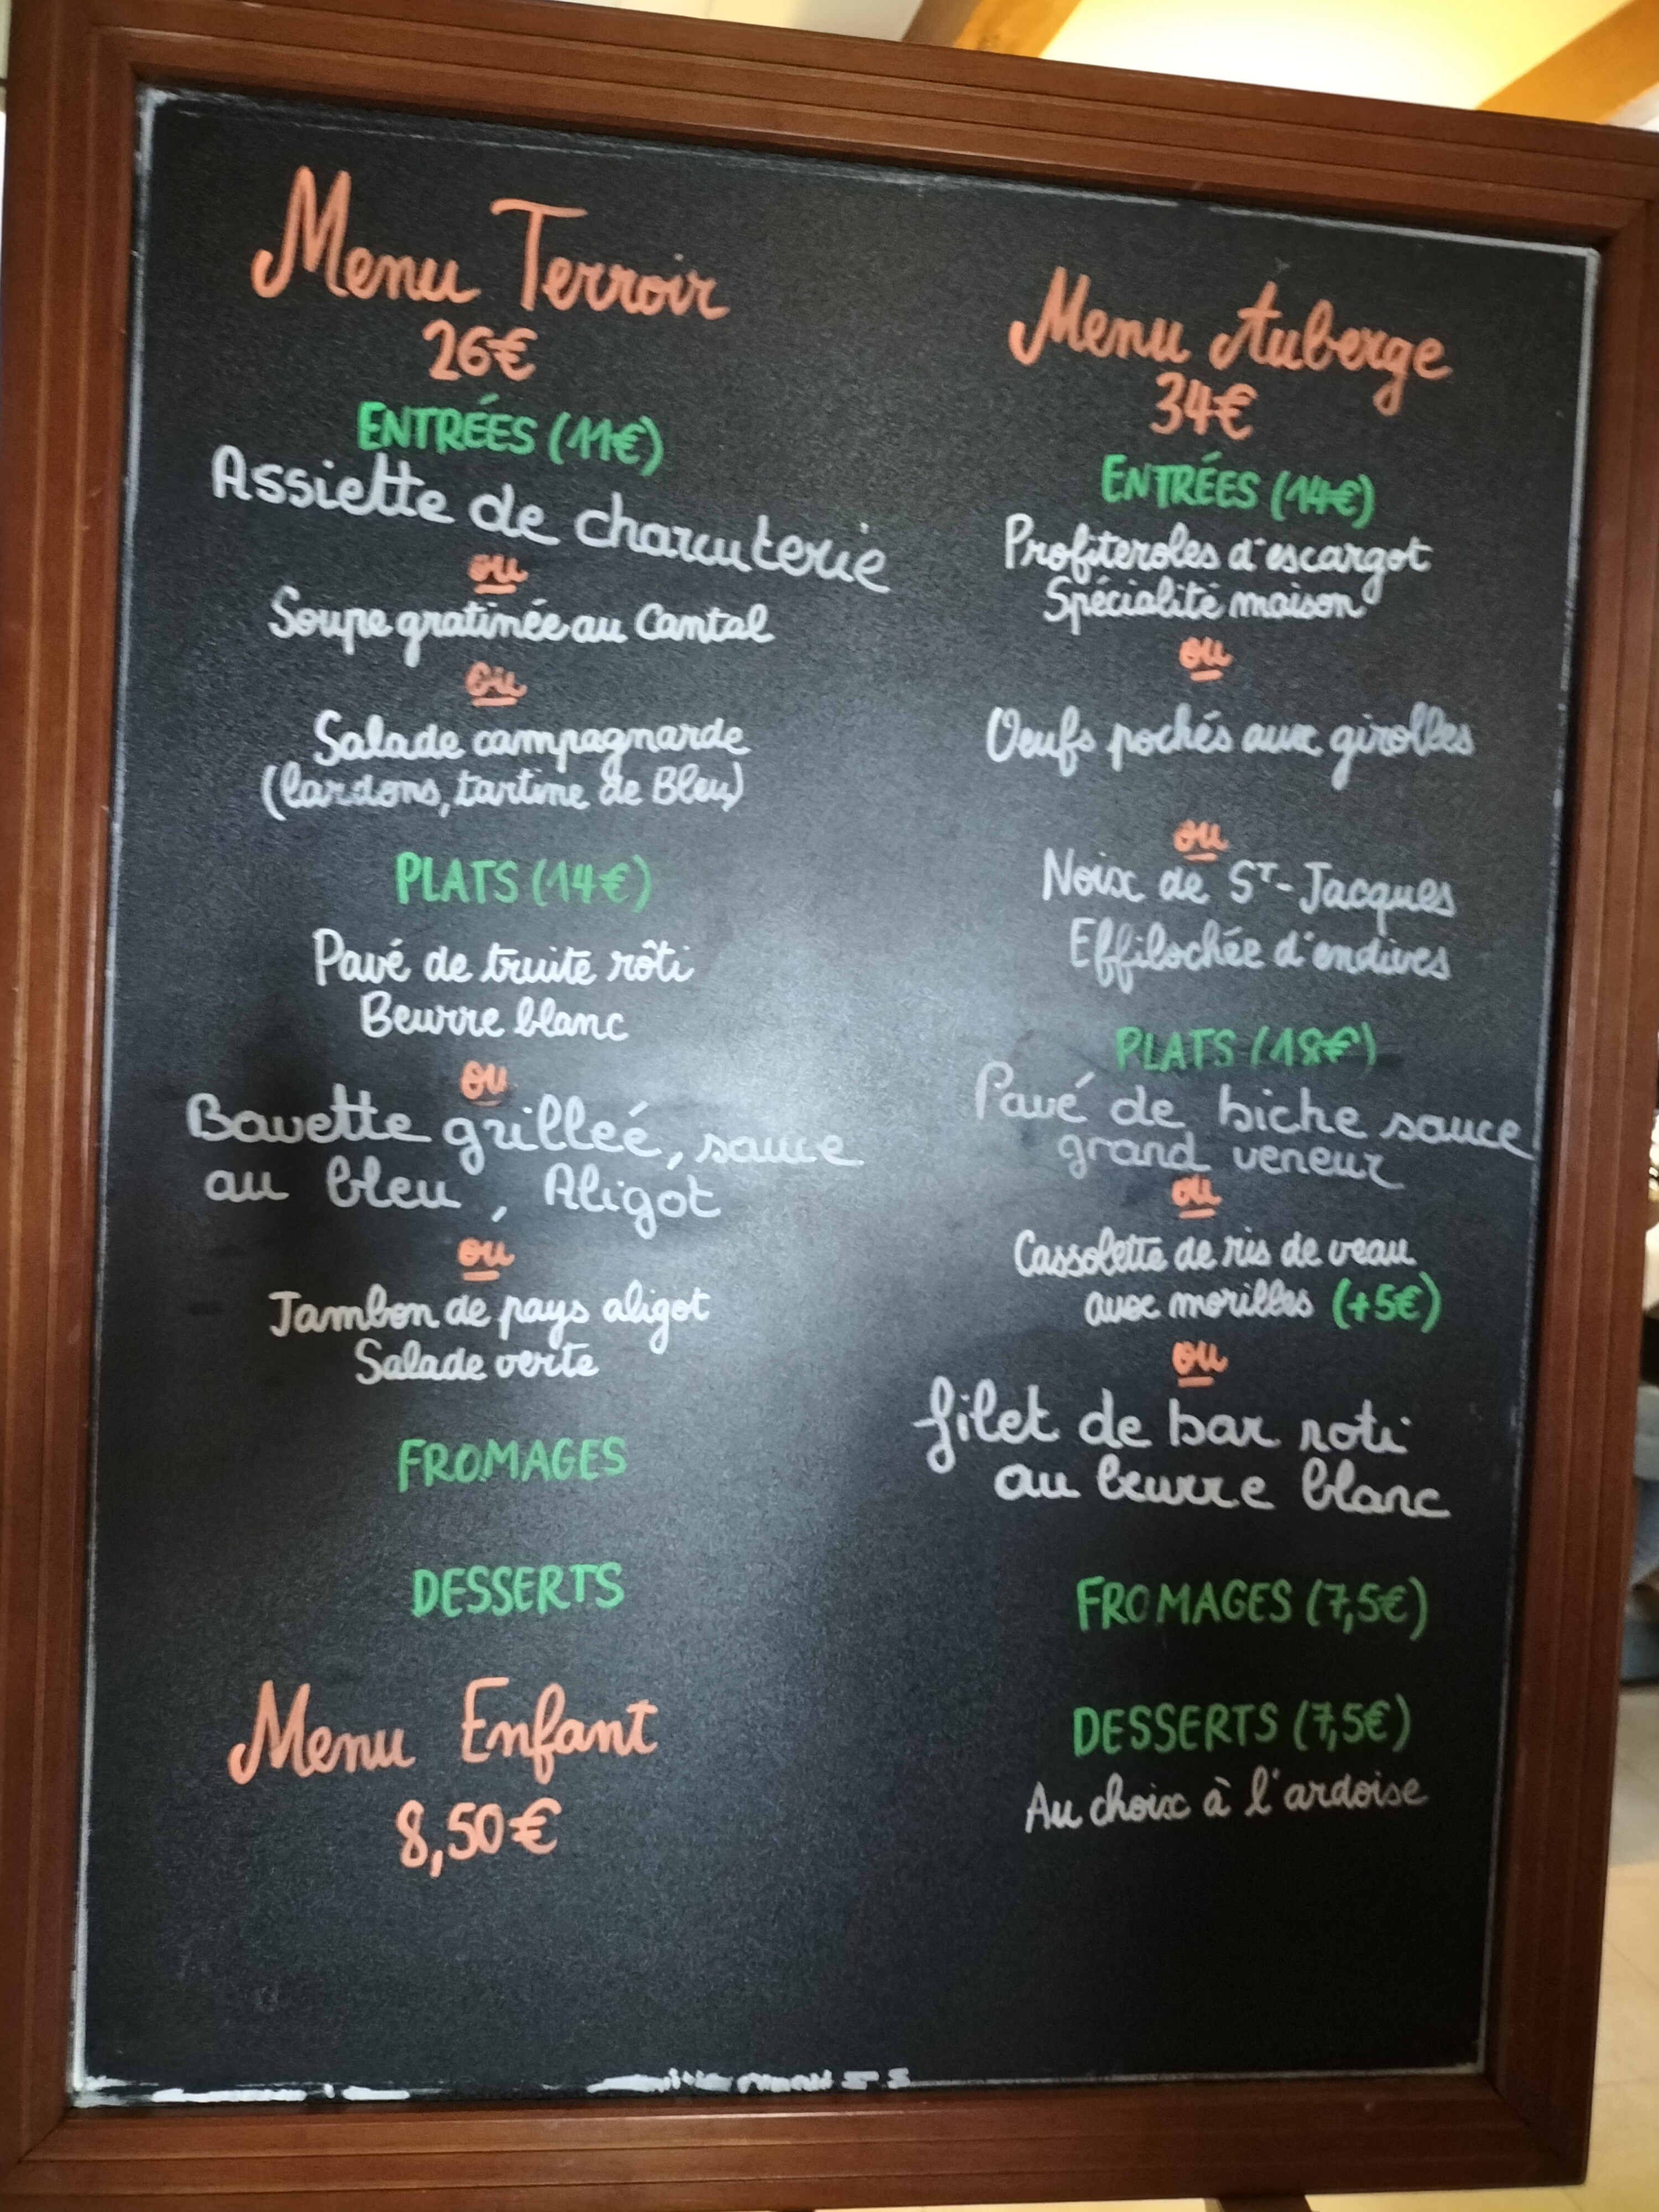 Menu Terroir
26€
ENTRÉES (11€)
Assiette de charcuterie
ou
Soupe gratinée au Cantal
ou
Salade campagnarde
(lardons, tartine de Bleu)
PLATS (14€)
Pavé de truite rôti
Beurre blanc
ou
Bavette grilleé, sauce
au bleu, Aligot
ou
Jambon de pays aligot
Salade verte
FROMAGES
DESSERTS
Menu Enfant
8,50€
Menu Auberge
34€
ENTRÉES (14€)
Profiteroles d'escargot
Spécialité maison
ou
Oeufs pochés aux girolles
ou
Noix de ST-Jacques
Effilochée d'endives
PLATS (18€)
Pavé de biche sauce
grand veneur
ou
Cassolette de ris de veau
avec morilles (+5€)
ou
filet de bar roti
au beurre blanc
FROMAGES (7,5€)
DESSERTS (7,5€)
Au choix à l'ardoise